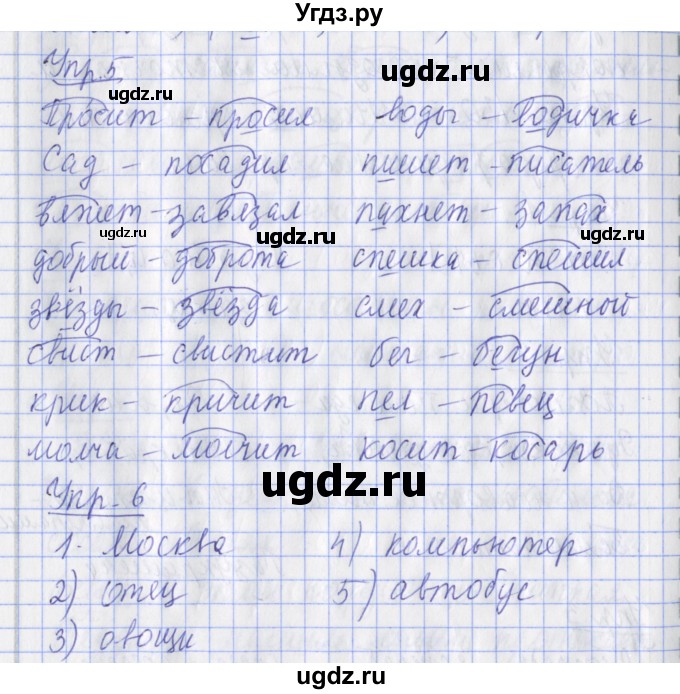 Угдз.ру
Упр.5
Просит – просил воды – Водичка
Сад – посадил пишет – писатель
вяжет – завязал пахнет – запах
добрый – доброта спешка – спешил
звёзды – звёзда смех – смешной
свист – свистит бег – бегун
крик – кричит пел – певец
молча – молчит косит – косарь
Упр. 6
1. Москва 4) компьютер
2) отец 5) автобус
3) овощи
ugdz.ru
ugdz.ru
ugdz.ru
ugdz.ru
ugdz.ru
ugdz.ru
ugdz.ru
ugdz.ru